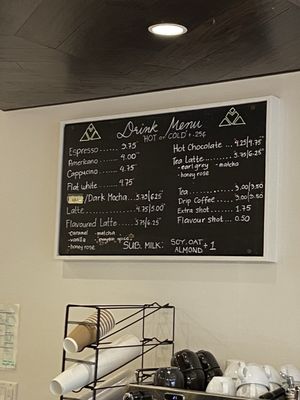 Drink Menu
HOT or COLD + .25¢
Espresso ...... 3.75
Americano ...... 4.00
Cappucino ...... 4.75
Flat white ...... 4.75
/Dark Mocha ..... 5.75/6.25
Latte ............ 4.75/5.00
Flavoured Latte ...... 5.75/6.25
-caramel -matcha
-vanilla
-honey rose
Hot Chocolate ..... 4.25/4.75
Tea Latte ............ 5.75/6.25
-earl grey -matcha
-honey rose
Tea ............ 3.00/3.50
Drip Coffee ........ 3.00/3.50
Extra shot ........ 1.75
Flavour shot ...... 0.50
SUB. MILK: SOY, OAT
ALMOND +1